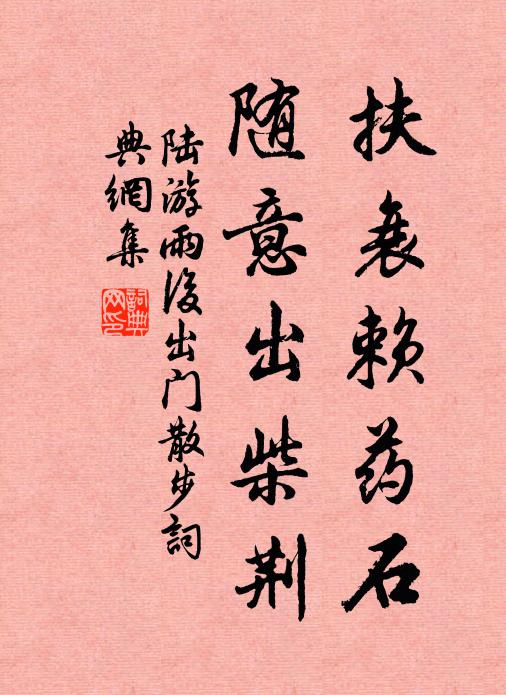 扶衰赖药石
随意出柴荆
陆游雨后出门散步詞
典網集
詞典网印